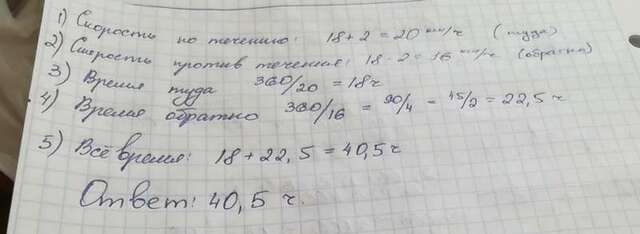 1) Скорость по течению: 18 + 2 = 20 км/ч (туда)
2) Скорость против течения: 18 - 2 = 16 км/ч (обратно)
3) Время туда 360/20 = 18 ч
4) Время обратно 360/16 = 90/4 = 45/2 = 22,5 ч
5) Всё время: 18 + 22,5 = 40,5 ч
Ответ: 40,5 ч.